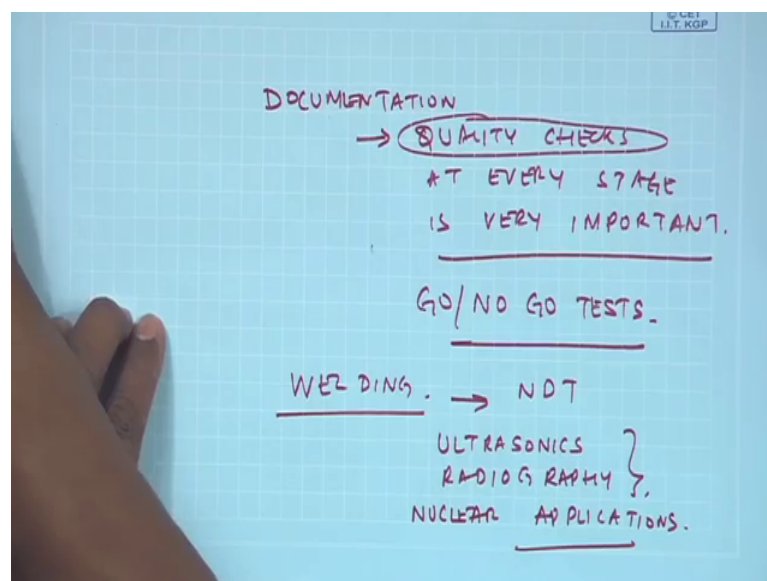 © CET
I.I.T. KGP
DOCUMENTATION
→ QUALITY CHECKS
AT EVERY STAGE
IS VERY IMPORTANT.
GO/NO GO TESTS.
WELDING. → NDT
ULTRASONICS
RADIOGRAPHY
NUCLEAR APPLICATIONS.